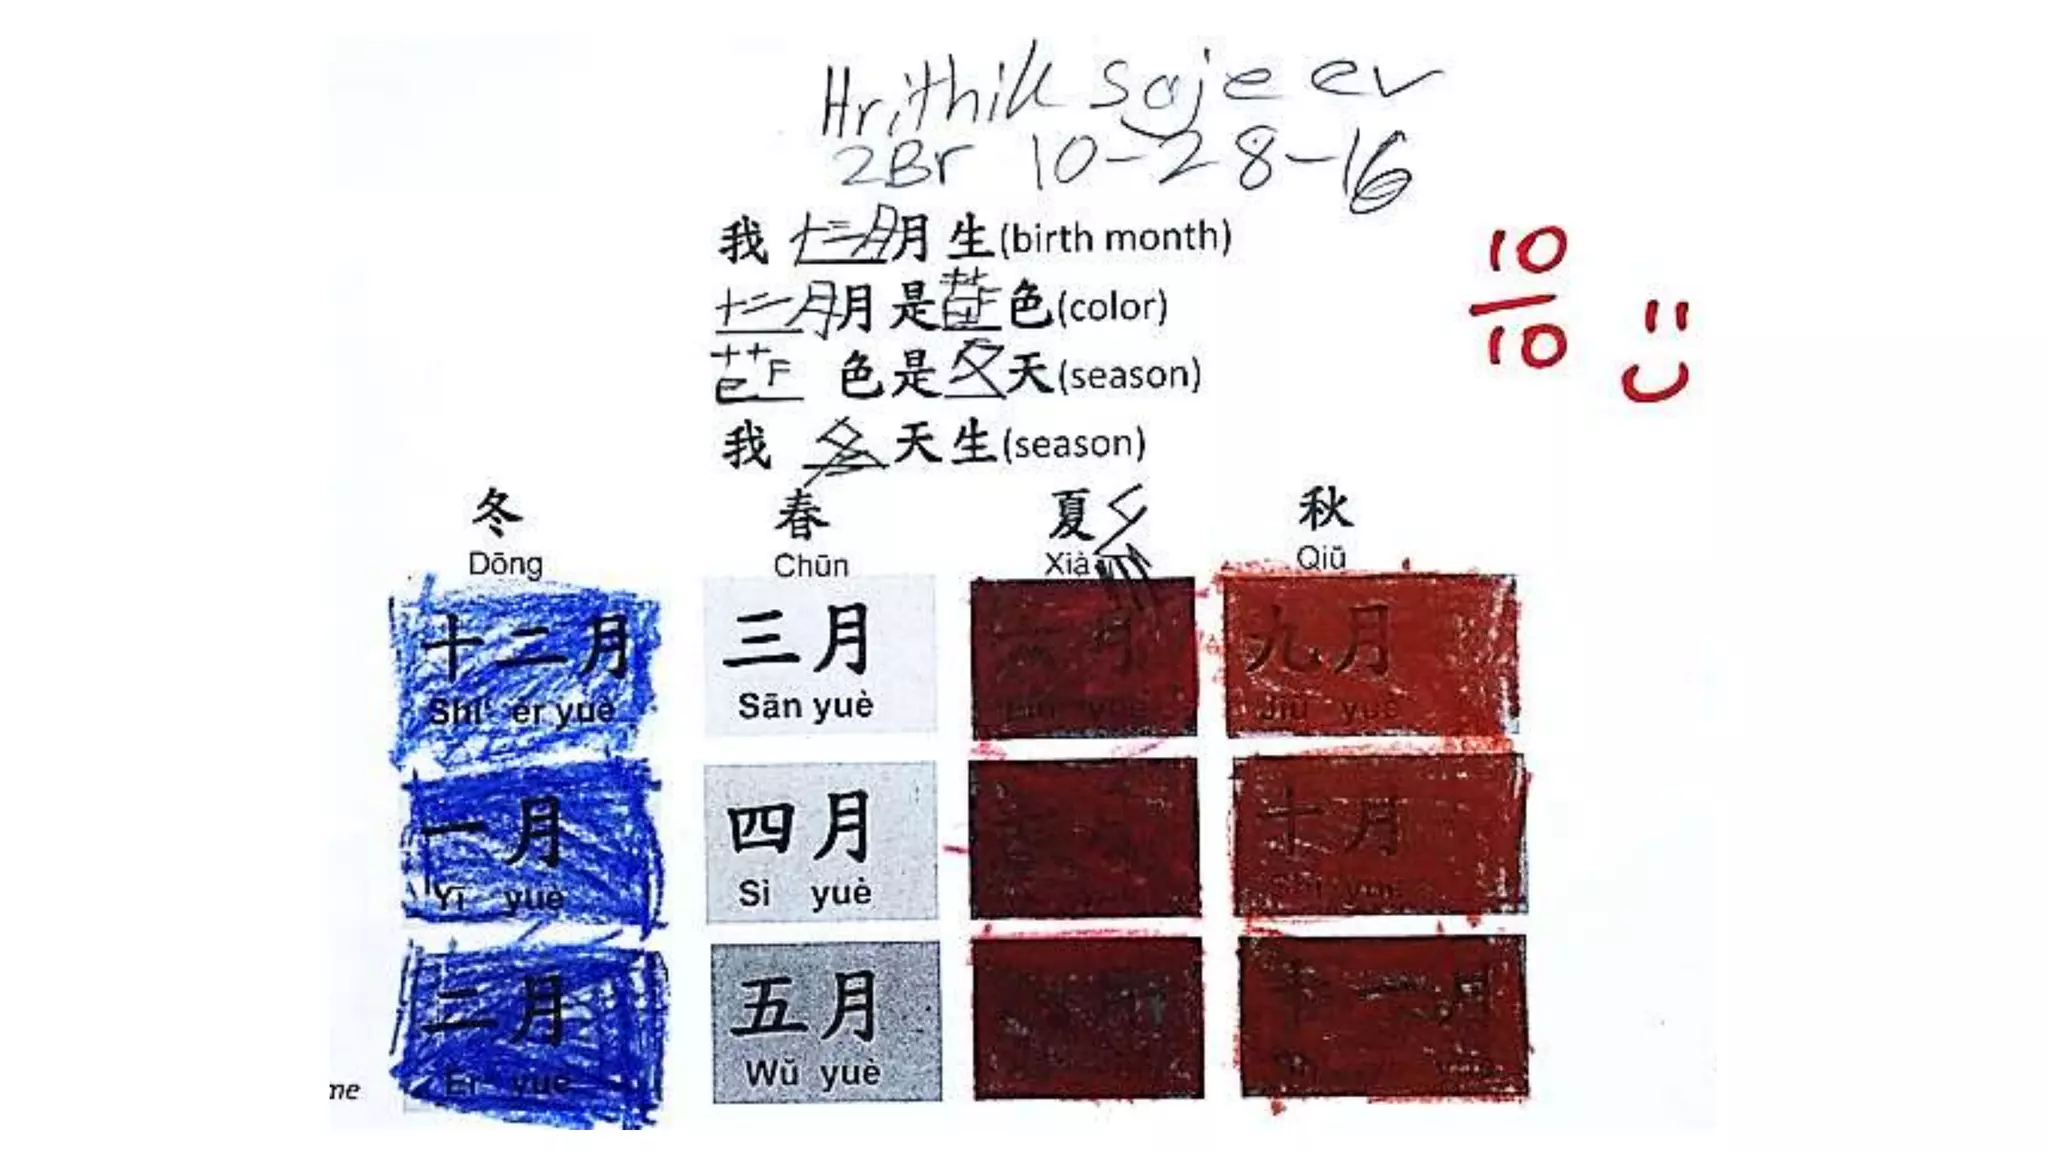 Hrithik Sajeev
2Br 10-28-16
我 十二月月 生(birth month)
十二月月 是 色(color)
色是冬天(season)
我 冬 天生(season)
10
10
冬 春 夏 秋
Dōng Chūn Xià Qiū
十二月 三月 六月 九月
Shí èr yuè Sān yuè Liù yuè Jiǔ yuè
一月 四月 十月
Yī yuè Sì yuè Shí yuè
二月 五月 十一月
Èr yuè Wǔ yuè
me